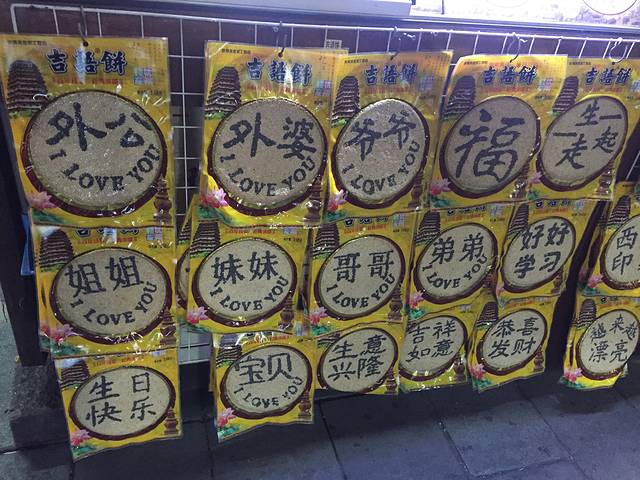 吉語餅
外公
I LOVE YOU
吉語餅
外婆
I LOVE YOU
吉語餅
爷爷
I LOVE YOU
吉語餅
福
吉語餅
一生一起走
姐姐
I LOVE YOU
妹妹
I LOVE YOU
哥哥
I LOVE YOU
弟弟
I LOVE YOU
好好
学习
西
印
生日
快乐
宝贝
I LOVE YOU
生意
兴隆
吉祥
如意
恭喜
发财
越来越
漂亮